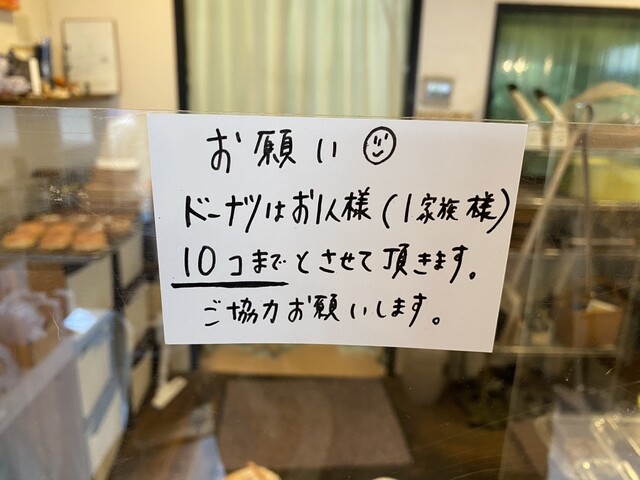 お願い
ドーナツはお1人様(1家族様)
10コまでとさせて頂きます。
ご協力お願いします。